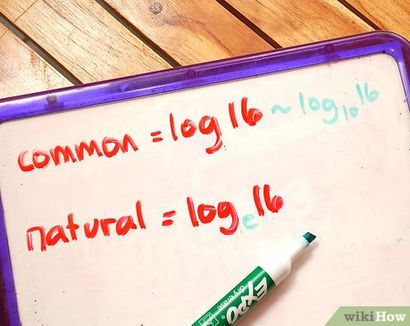 common = log 16 ~ log₁₀16
natural = logₑ16
EXPO
dry erase
wikiHow